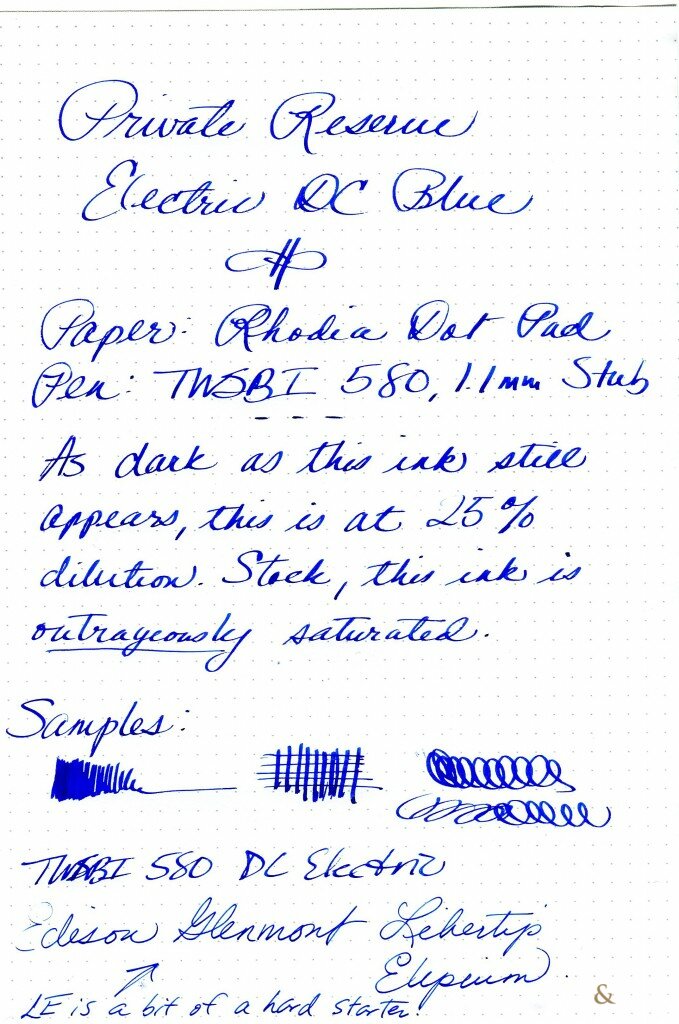 Private Reserve
Electric DC Blue
Paper: Rhodia Dot Pad
Pen: TWSBI 580, 1.1mm Stub
As dark as this ink still
appears, this is at 25%
dilution. Stock, this ink is
outrageously saturated.
Samples:
TWSBI 580 DC Electric
Edison Glenmont Liberty's
Elysium
LE is a bit of a hard starter!
&